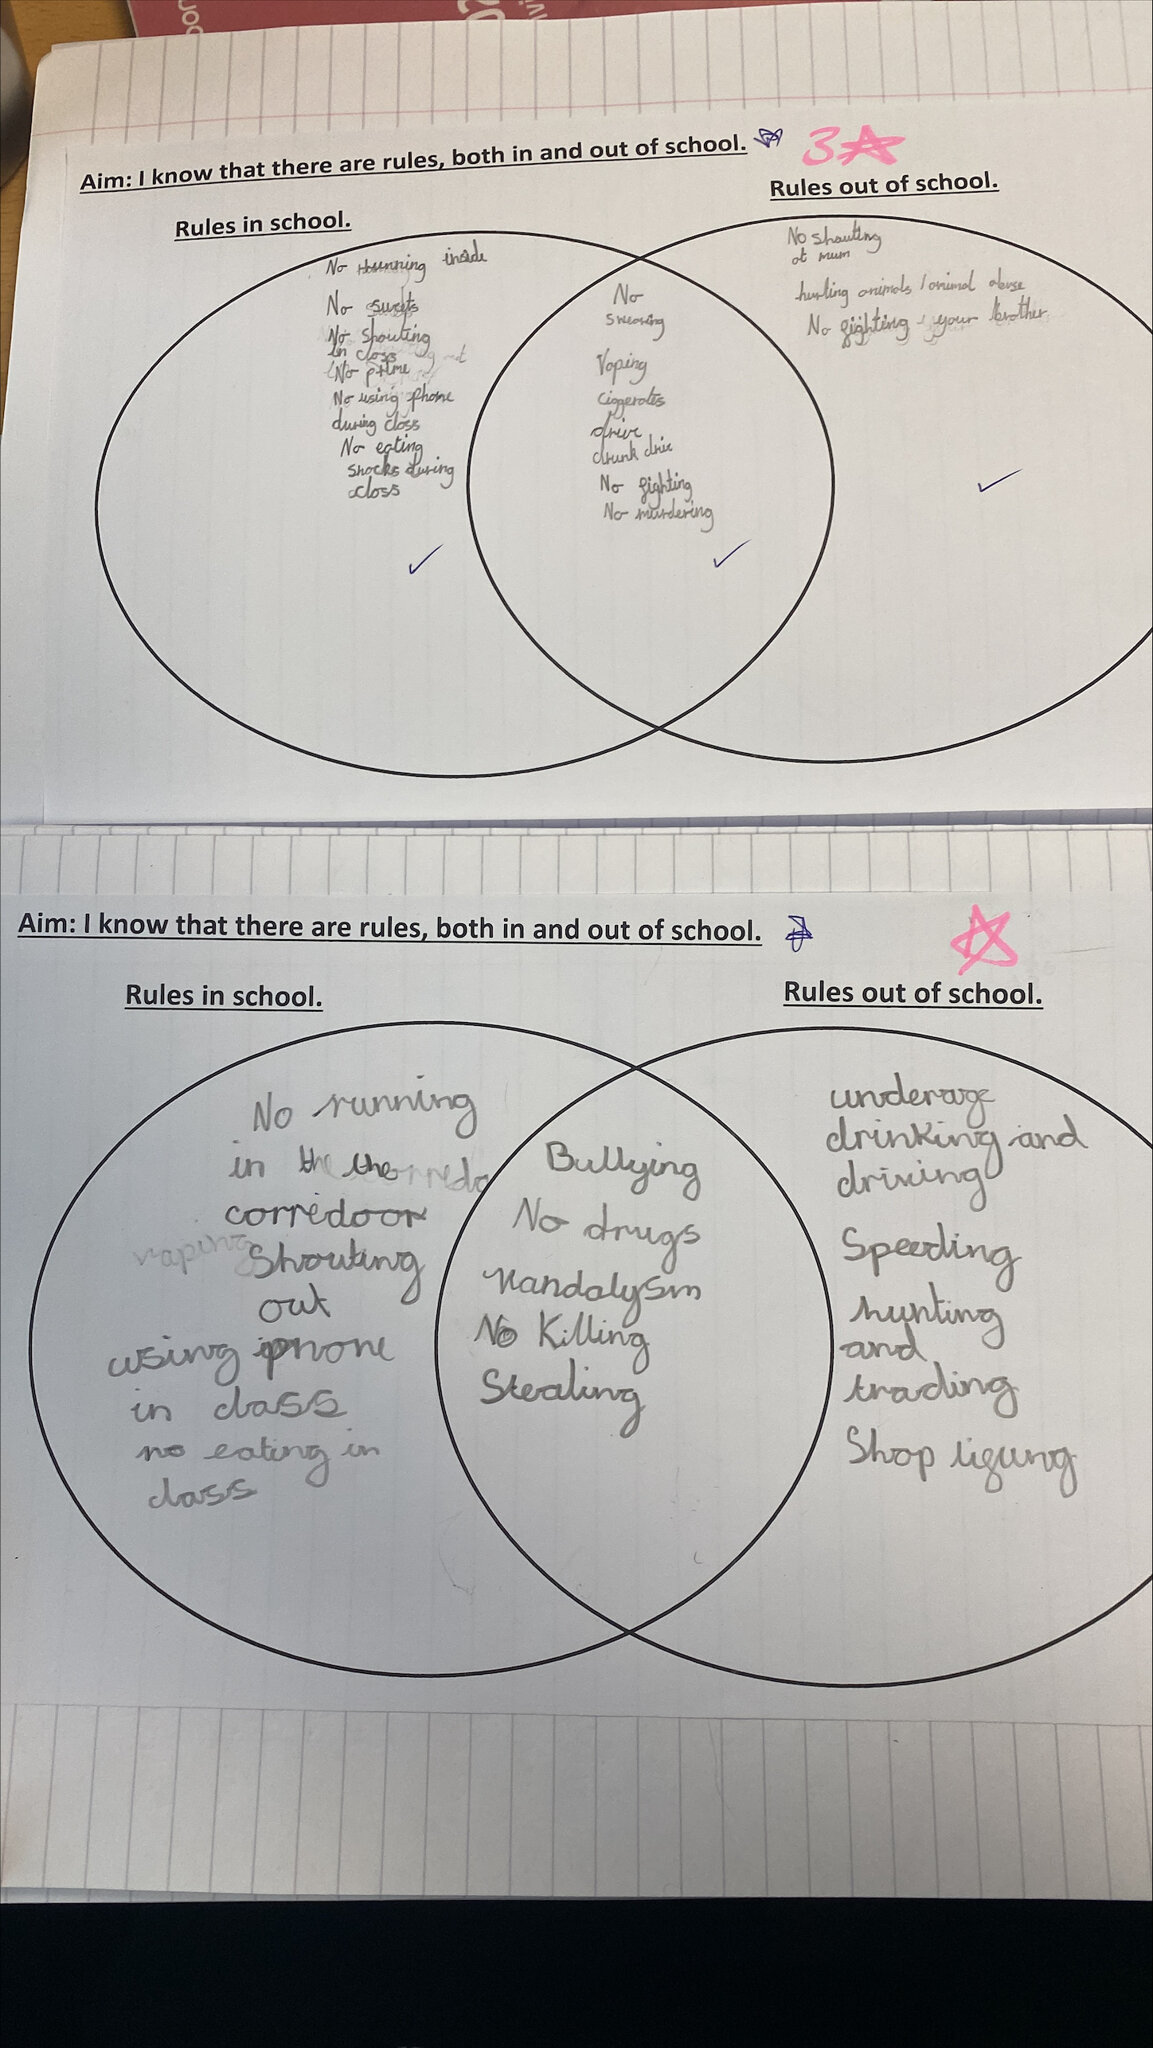 Aim: I know that there are rules, both in and out of school.
3
Rules in school.
Rules out of school.
No running inside
No sweets
No shouting
in class
No prime
No using phone
during class
No eating
snacks during
class
No
swearing
Vaping
Ciggerates
drive
drunk driv
No fighting
No murdering
No shouting
at mum
hurting animals / animal abuse
No fighting your brother
Aim: I know that there are rules, both in and out of school.
Rules in school.
Rules out of school.
No running
in the
corredoor
vaping
Shouting
out
using phone
in class
no eating in
class
Bullying
No drugs
Vandalysm
No Killing
Stealing
underage
drinking and
driving
Speeding
hunting
and
trading
Shop